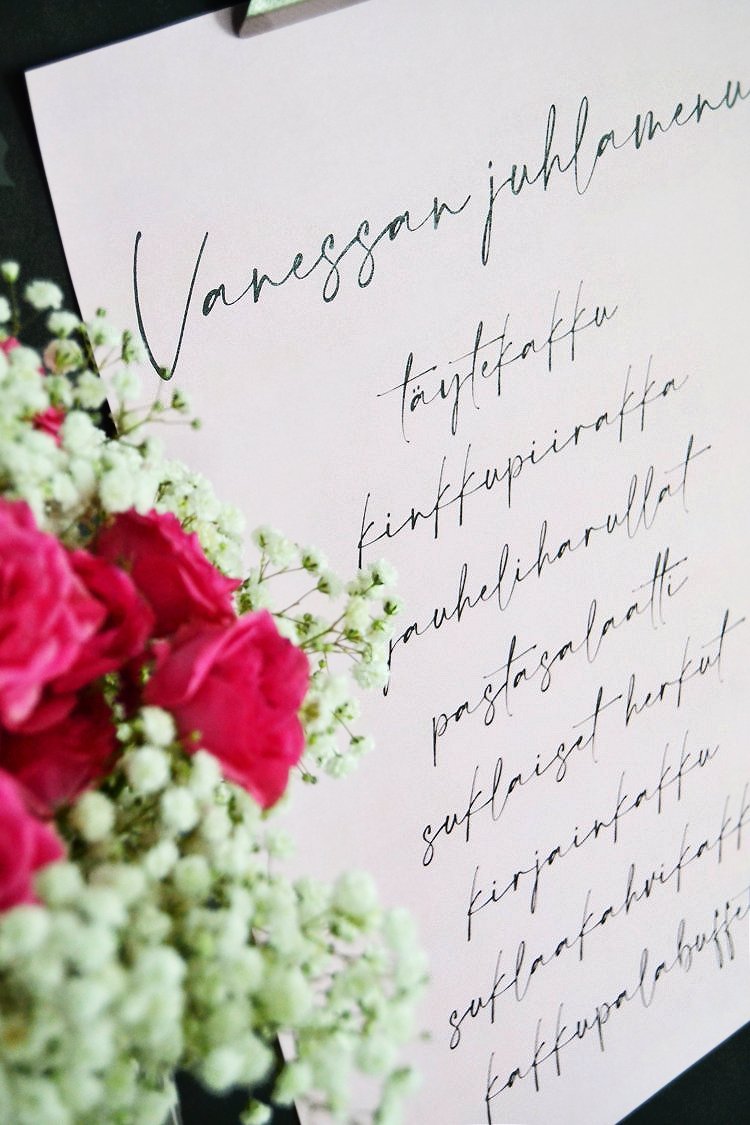 Vanessan juhlamenu
täytekakku
kinkkupiirakka
jauheliharullat
pastasalaatti
suklaiset herkut
kirjainkakku
suklaakahvikakk
kakkupalabuffet